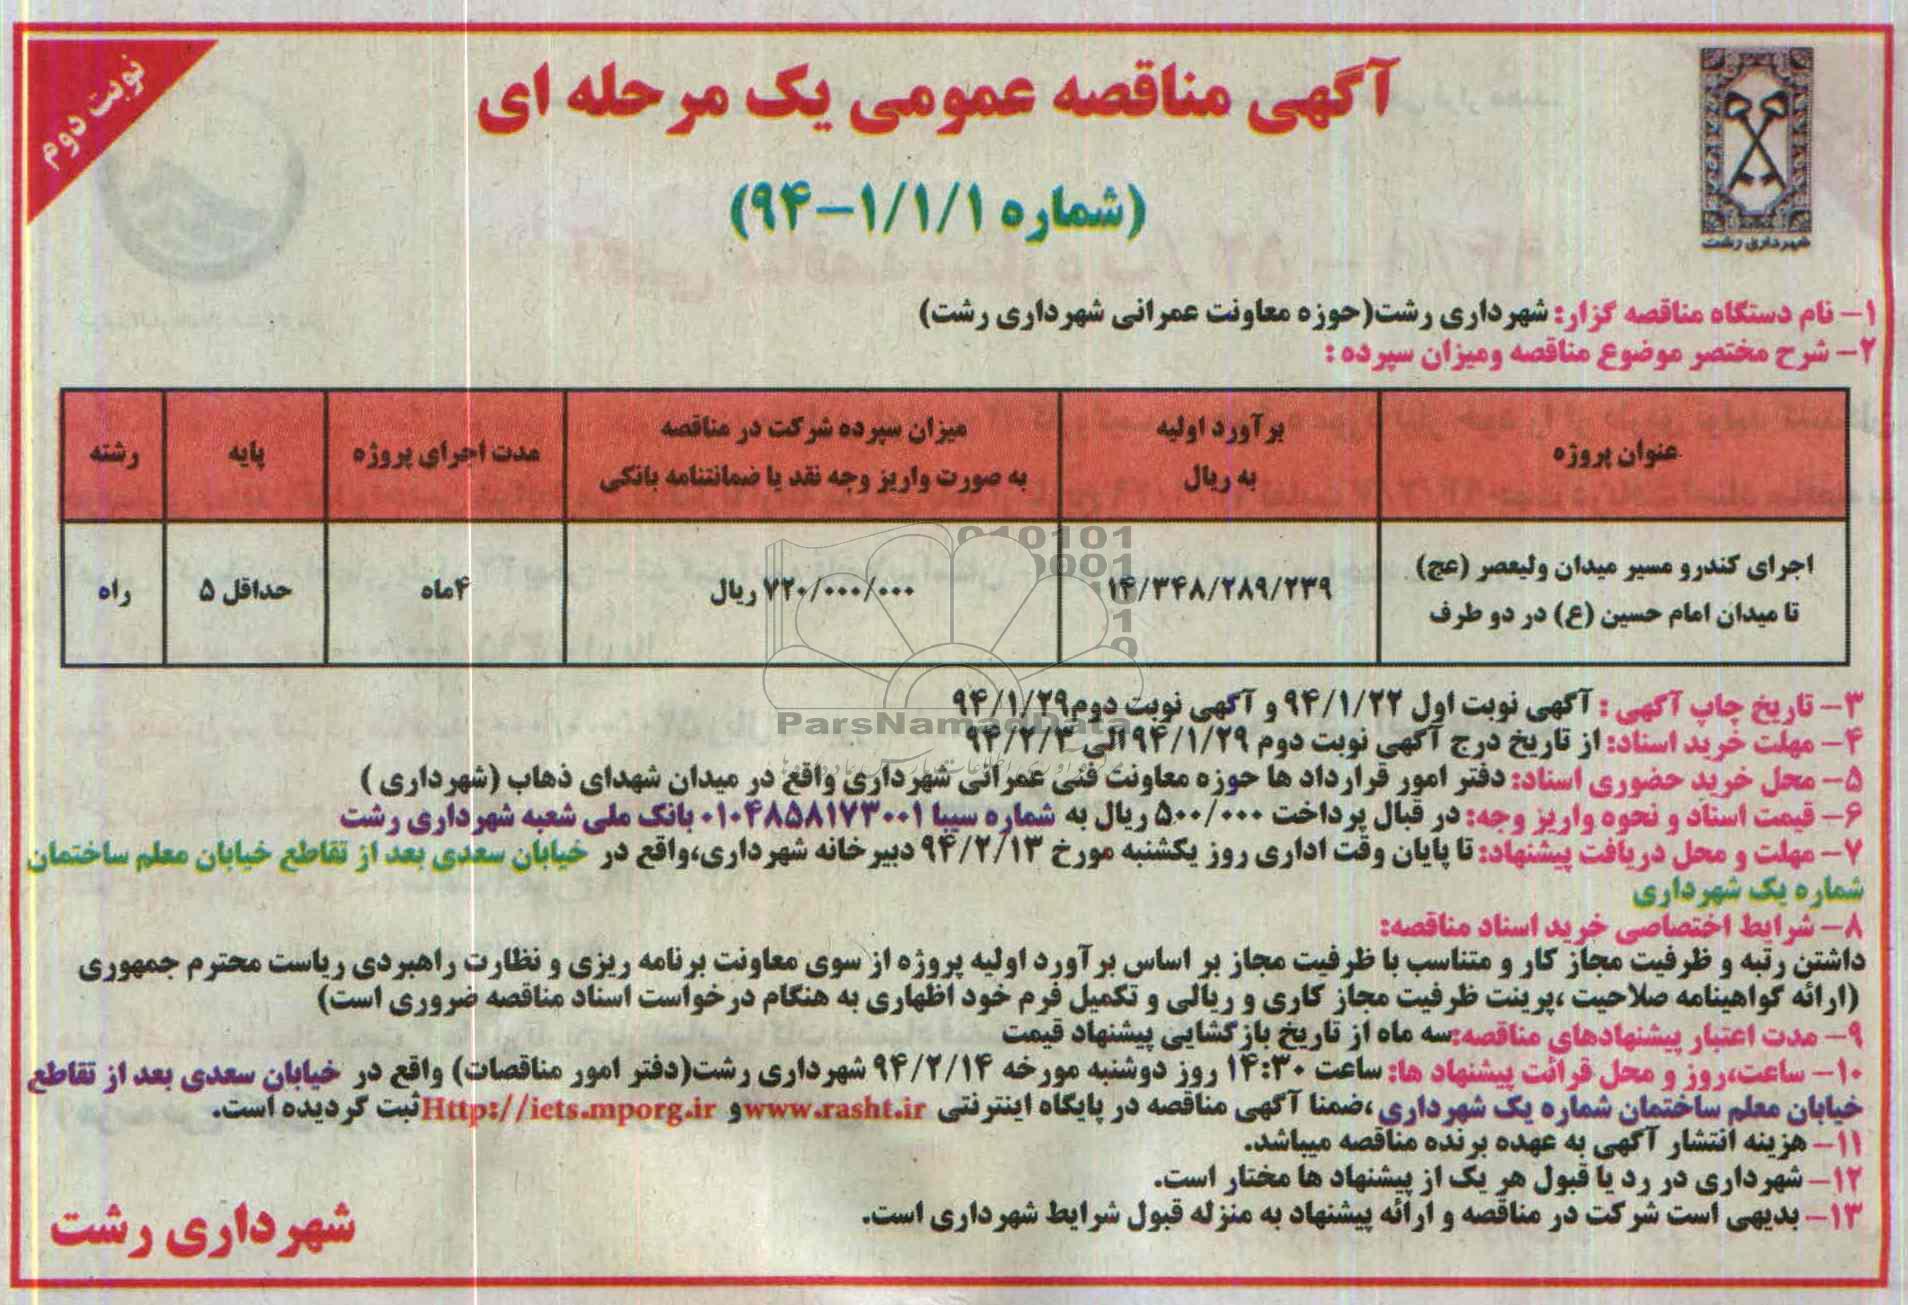 نوبت دوم
آگهی مناقصه عمومی یک مرحله ای
(شماره ۹۴-۱/۱/۱)
شهرداری رشت
۱- نام دستگاه مناقصه گزار: شهرداری رشت(حوزه معاونت عمرانی شهرداری رشت)
۲- شرح مختصر موضوع مناقصه ومیزان سپرده :
عنوان پروژه
برآورد اولیه
به ریال
میزان سپرده شرکت در مناقصه
به صورت واریز وجه نقد یا ضمانتنامه بانکی
مدت اجرای پروژه
پایه
رشته
اجرای کندرو مسیر میدان ولیعصر (عج)
تا میدان امام حسین (ع) در دو طرف
۱۴/۳۴۸/۲۸۹/۲۳۹
۷۲۰/۰۰۰/۰۰۰ ریال
۴ماه
حداقل ۵
راه
۳- تاریخ چاپ آگهی : آگهی نوبت اول ۹۴/۱/۲۲ و آگهی نوبت دوم۹۴/۱/۲۹
ParsNamadData
۴- مهلت خرید اسناد: از تاریخ درج آگهی نوبت دوم ۹۴/۱/۲۹الی ۹۴/۲/۳
۵- محل خرید حضوری اسناد: دفتر امور قرارداد ها حوزه معاونت فنی عمرانی شهرداری واقع در میدان شهدای ذهاب (شهرداری )
۶- قیمت اسناد و نحوه واریز وجه: در قبال پرداخت ۵۰۰/۰۰۰ ریال به شماره سیبا ۰۱۰۴۸۵۸۱۷۳۰۰۱ بانک ملی شعبه شهرداری رشت
۷- مهلت و محل دریافت پیشنهاد: تا پایان وقت اداری روز یکشنبه مورخ ۹۴/۲/۱۳ دبیرخانه شهرداری،واقع در خیابان سعدی بعد از تقاطع خیابان معلم ساختمان
شماره یک شهرداری
۸- شرایط اختصاصی خرید اسناد مناقصه:
داشتن رتبه و ظرفیت مجاز کار و متناسب با ظرفیت مجاز بر اساس برآورد اولیه پروژه از سوی معاونت برنامه ریزی و نظارت راهبردی ریاست محترم جمهوری
(ارائه گواهینامه صلاحیت ،پرینت ظرفیت مجاز کاری و ریالی و تکمیل فرم خود اظهاری به هنگام درخواست اسناد مناقصه ضروری است)
۹- مدت اعتبار پیشنهادهای مناقصه:سه ماه از تاریخ بازگشایی پیشنهاد قیمت
۱۰- ساعت،روز و محل قرائت پیشنهاد ها: ساعت ۱۴:۳۰ روز دوشنبه مورخه ۹۴/۲/۱۴ شهرداری رشت(دفتر امور مناقصات) واقع در خیابان سعدی بعد از تقاطع
خیابان معلم ساختمان شماره یک شهرداری ،ضمنا آگهی مناقصه در پایگاه اینترنتی www.rasht.ir و Http://iets.mporg.ir ثبت گردیده است.
۱۱- هزینه انتشار آگهی به عهده برنده مناقصه میباشد.
۱۲- شهرداری در رد یا قبول هر یک از پیشنهاد ها مختار است.
۱۳- بدیهی است شرکت در مناقصه و ارائه پیشنهاد به منزله قبول شرایط شهرداری است.
شهرداری رشت